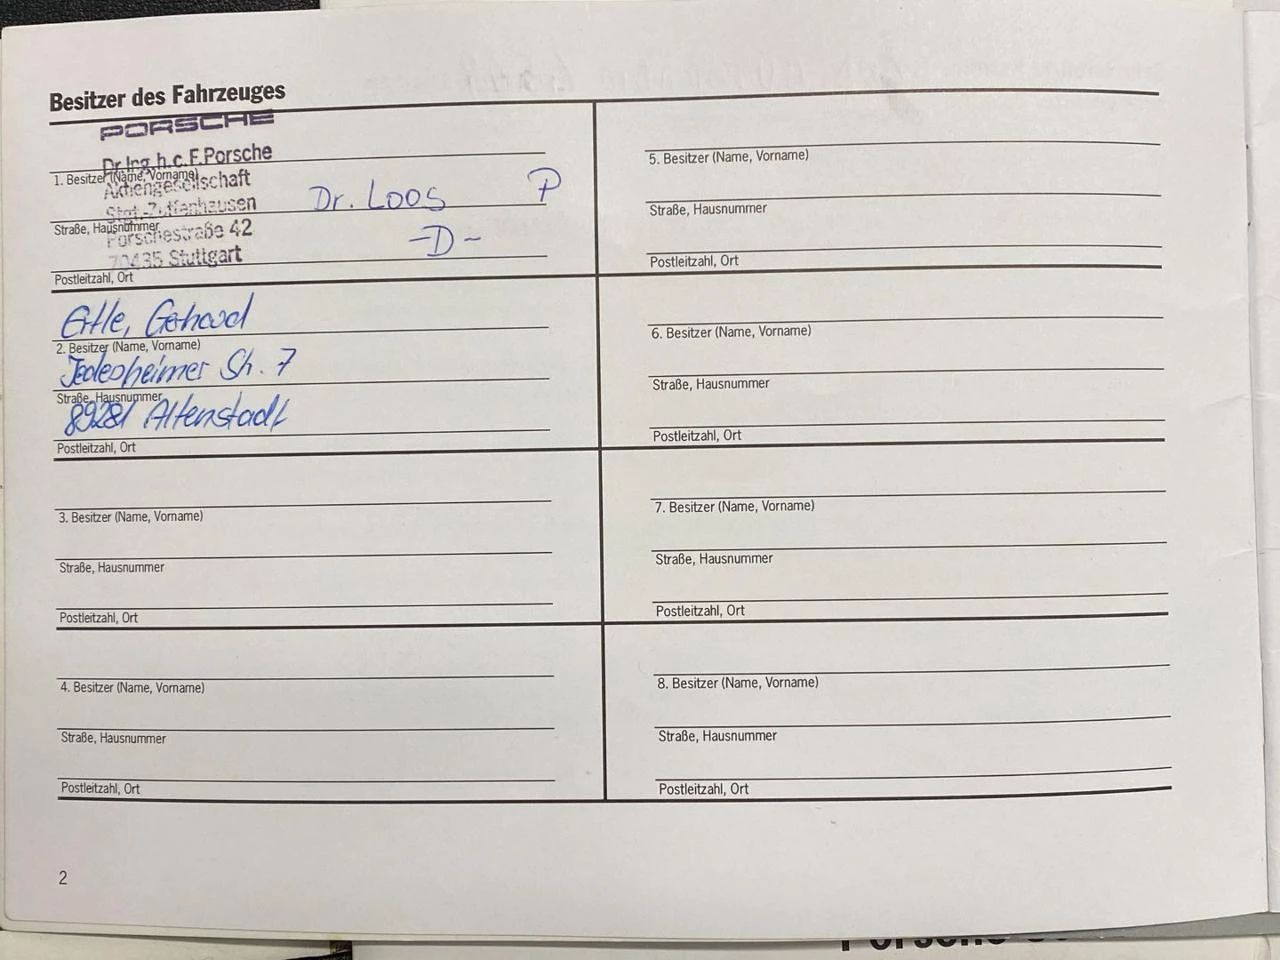 Besitzer des Fahrzeuges
PORSCHE
Dr.Ing.h.c.F.Porsche
1. Besitzer (Name, Vorname)
Aktiengesellschaft
Dr. Loos P
Stgt.-Zuffenhausen
Straße, Hausnummer
Porschestraße 42
-D-
70435 Stuttgart
Postleitzahl, Ort
2. Besitzer (Name, Vorname)
Str. 7
Straße, Hausnummer
89281 Altenstadt
Postleitzahl, Ort
3. Besitzer (Name, Vorname)
Straße, Hausnummer
Postleitzahl, Ort
4. Besitzer (Name, Vorname)
Straße, Hausnummer
Postleitzahl, Ort
5. Besitzer (Name, Vorname)
Straße, Hausnummer
Postleitzahl, Ort
6. Besitzer (Name, Vorname)
Straße, Hausnummer
Postleitzahl, Ort
7. Besitzer (Name, Vorname)
Straße, Hausnummer
Postleitzahl, Ort
8. Besitzer (Name, Vorname)
Straße, Hausnummer
Postleitzahl, Ort
2
Porsche